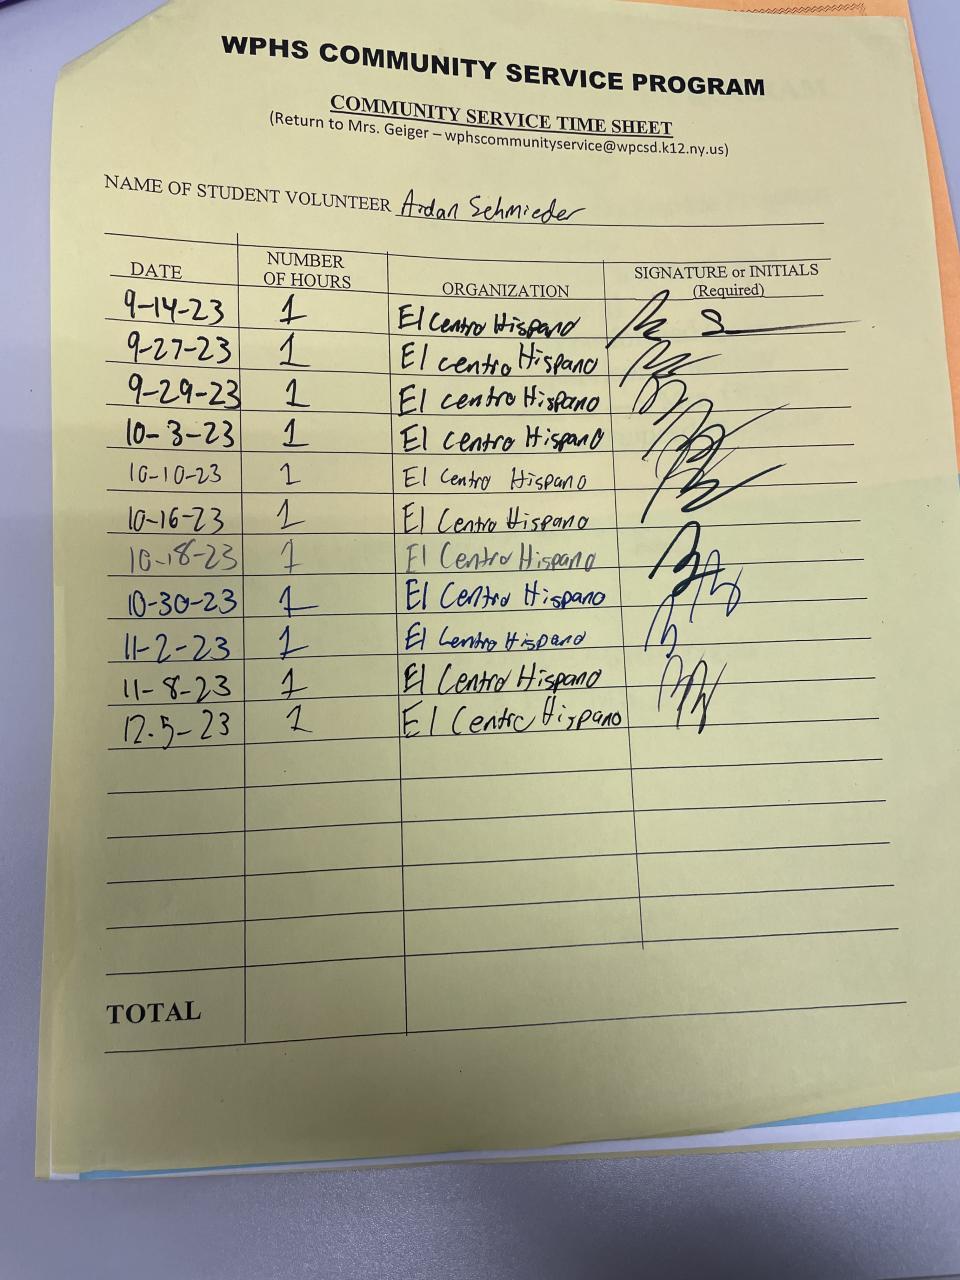 WPHS COMMUNITY SERVICE PROGRAM
COMMUNITY SERVICE TIME SHEET
(Return to Mrs. Geiger – wphscommunityservice@wpcsd.k12.ny.us)
NAME OF STUDENT VOLUNTEER Aidan Schmieder
DATE NUMBER OF HOURS ORGANIZATION SIGNATURE or INITIALS (Required)
9-14-23 1 El Centro Hispano
9-27-23 1 El centro Hispano
9-29-23 1 El centro Hispano
10-3-23 1 El centro Hispano
10-10-23 1 El Centro Hispano
10-16-23 1 El Centro Hispano
10-18-23 1 El Centro Hispano
10-30-23 1 El Centro Hispano
11-2-23 1 El Centro Hispano
11-8-23 1 El Centro Hispano
12-5-23 1 El Centro Hispano
TOTAL